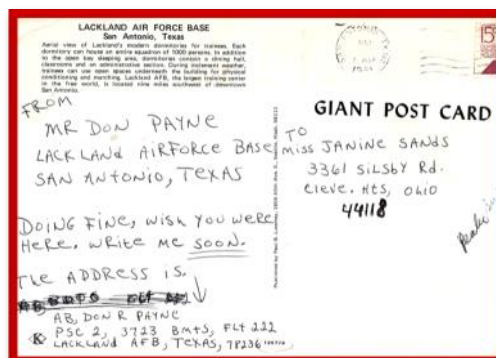 LACKLAND AIR FORCE BASE
San Antonio, Texas
Aerial view of Lackland's modern dormitories for trainees. Each
dormitory can house an entire squadron of 1000 persons. In addition
to the open bay sleeping area, dormitories contain a dining hall,
classrooms and an administrative section. During inclement weather,
trainees can use open spaces underneath the building for physical
conditioning and marching. Lackland AFB, the largest training center
in the free world, is located nine miles southwest of downtown
San Antonio.
FROM
MR DON PAYNE
LACKLAND AIRFORCE BASE
SAN ANTONIO, TEXAS
DOING FINE, WISH YOU WERE
HERE. WRITE ME SOON.
THE ADDRESS IS.
AB, DON R PAYNE
PSC 2, 3723 BMTS, FLT 222
LACKLAND AFB, TEXAS, 78236
K
15¢
GIANT POST CARD
TO
MISS JANINE SANDS
3361 SILSBY Rd.
Cleve. Hts, OHIO
44118